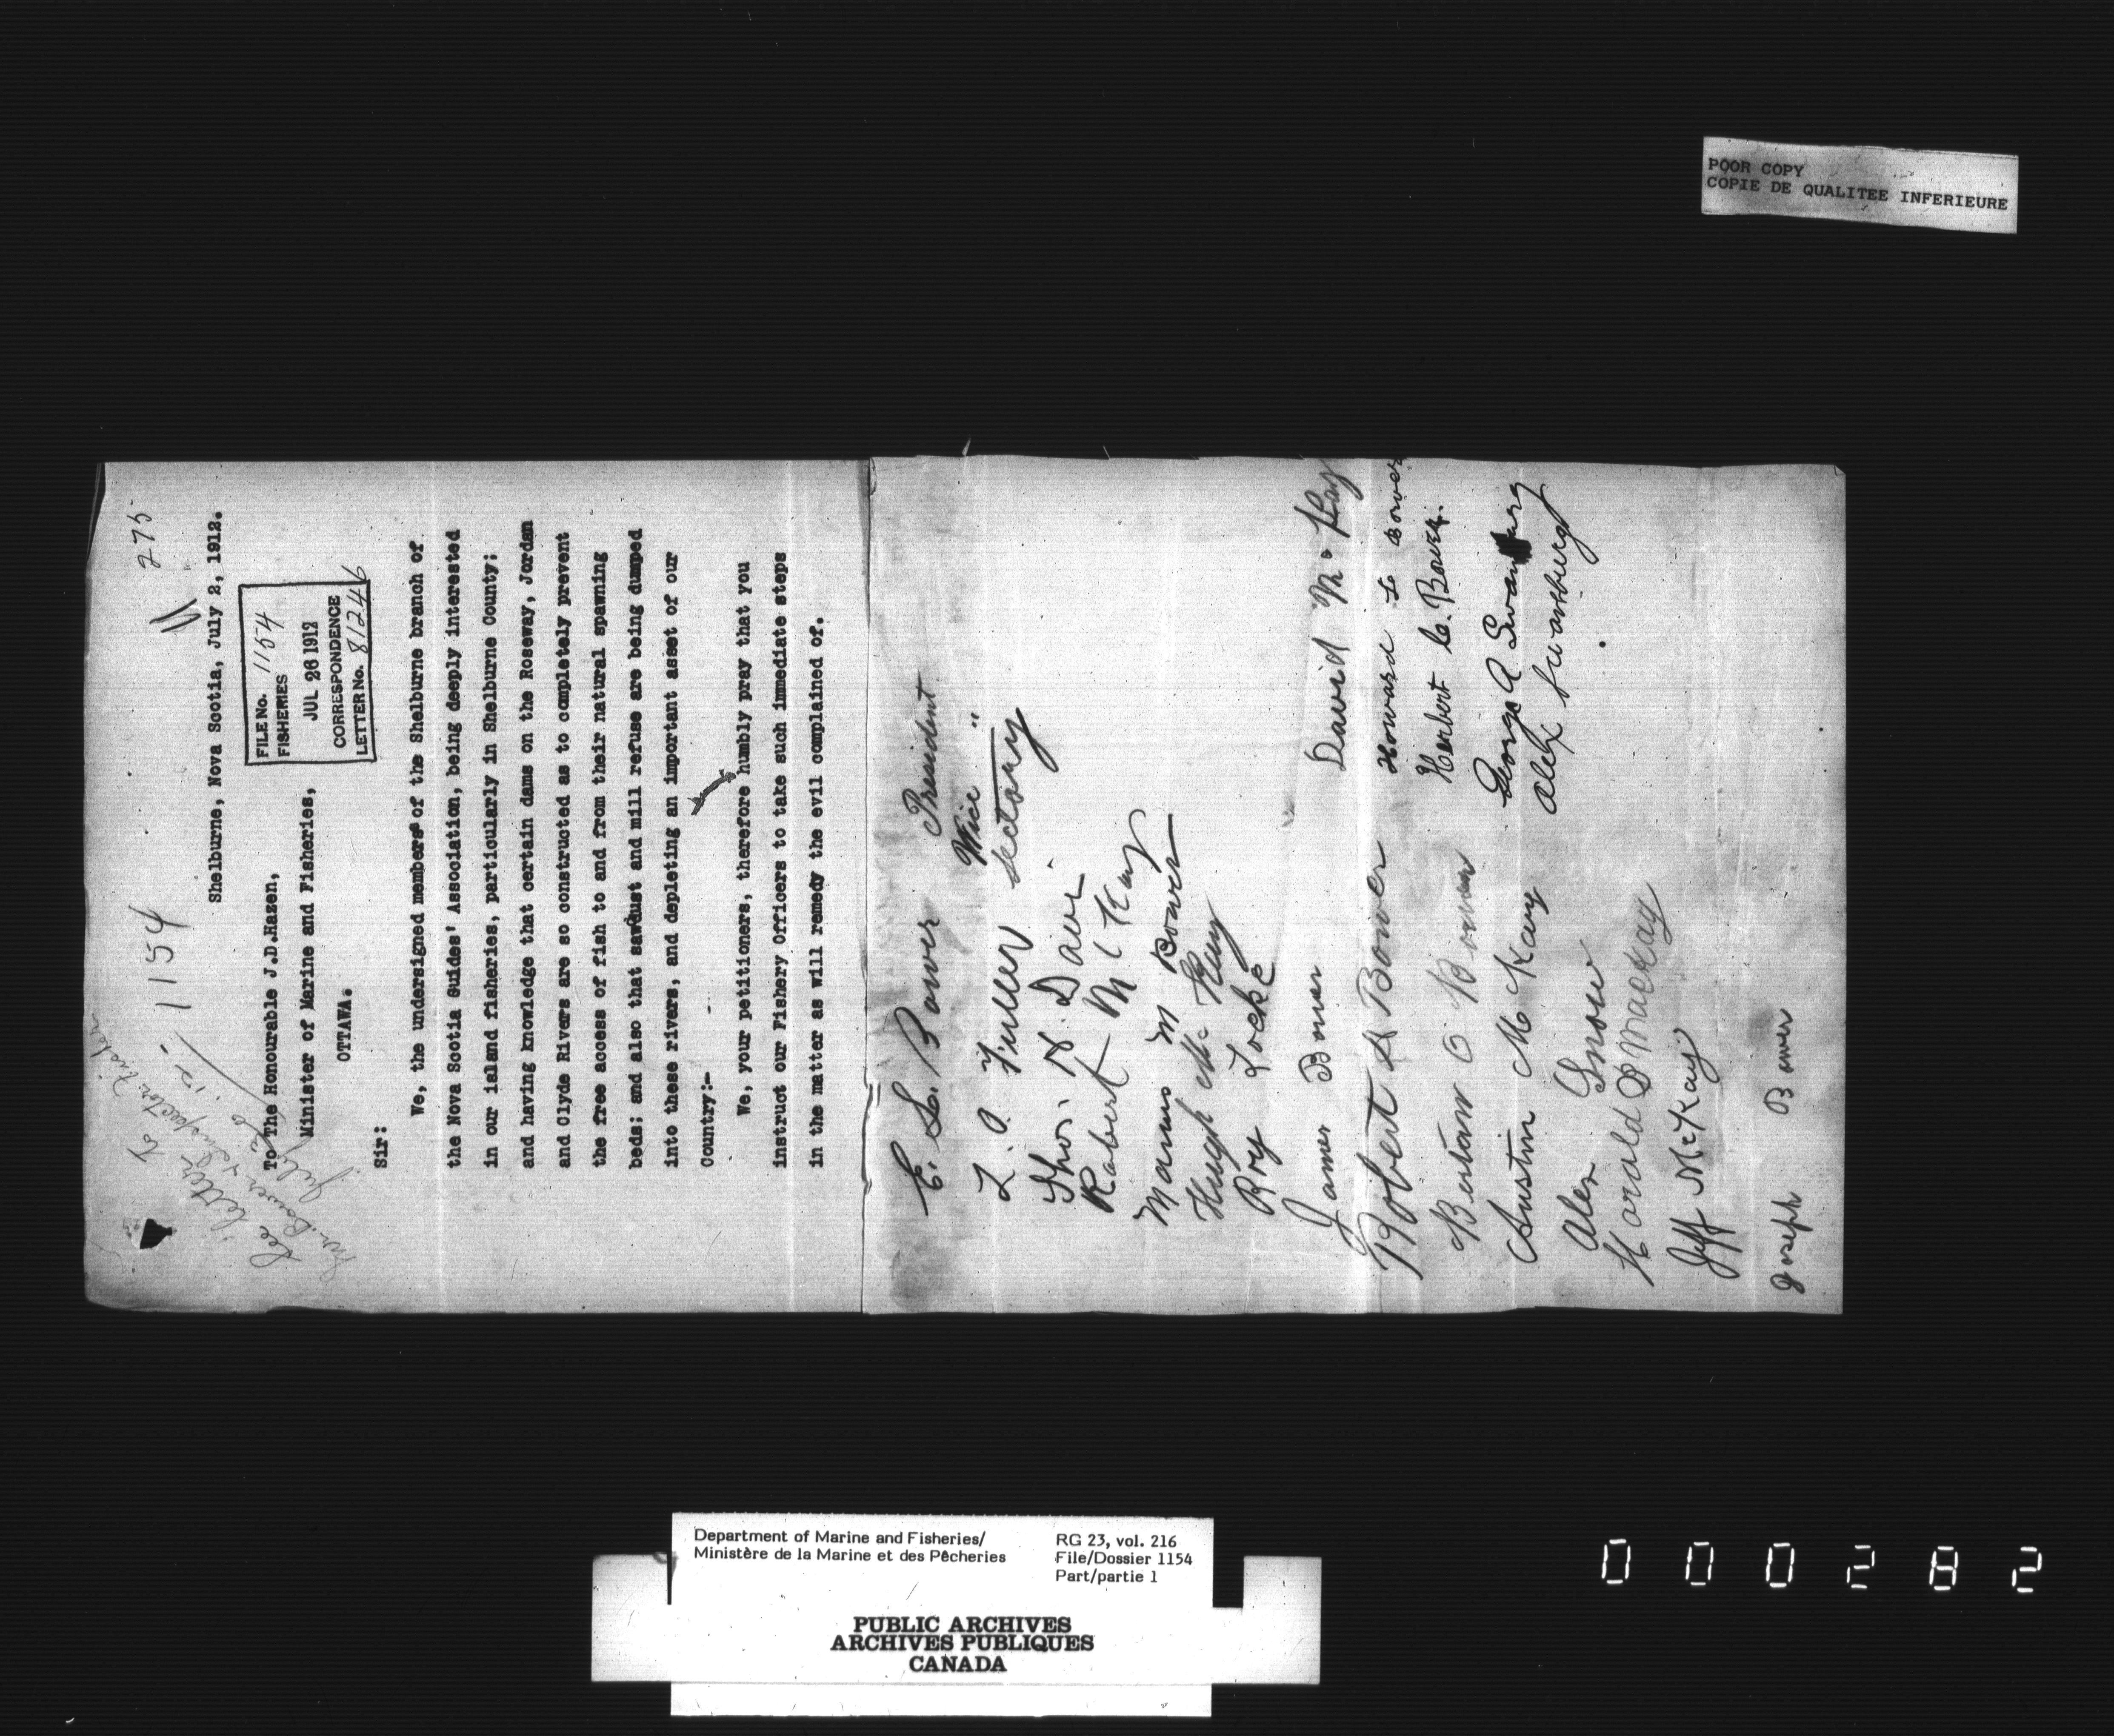 POOR COPY
COPIE DE QUALITEE INFERIEURE
275
1154
See letter to
Mr. Bower & Inspector Fisher
July 20/12
Shelburne, Nova Scotia, July 2, 1912.
FILE No. 1154
FISHERIES
JUL 26 1912
CORRESPONDENCE
LETTER No. 81246
To The Honourable J.D.Hazen,
Minister of Marine and Fisheries,
OTTAWA.
Sir:
We, the undersigned members of the Shelburne branch of
the Nova Scotia Guides' Association, being deeply interested
in our island fisheries, particularly in Shelburne County;
and having knowledge that certain dams on the Roseway, Jordan
and Clyde Rivers are so constructed as to completely prevent
the free access of fish to and from their natural spawning
beds; and also that sawdust and mill refuse are being dumped
into these rivers, and depleting an important asset of our
Country:-
We, your petitioners, therefore humbly pray that you
instruct our Fishery Officers to take such immediate steps
in the matter as will remedy the evil complained of.
E. L. Bower President
Vice "
L. O. Fuller Sectary
Thos. H. Davi
Robert McKay
Mannis M Bower
Hugh McKay
Roy Locke
James Bower
David McKay
Robert A Bower
Howard L Bower
Herbert C. Bower.
Burton O Bower
George A Swansburg
Austin McKay
Alex Swansburg
Alex Snow
Harald D MacKay
Jeff McKay
Joseph Bower
Department of Marine and Fisheries/
Ministère de la Marine et des Pêcheries
RG 23, vol. 216
File/Dossier 1154
Part/partie 1
PUBLIC ARCHIVES
ARCHIVES PUBLIQUES
CANADA
000282